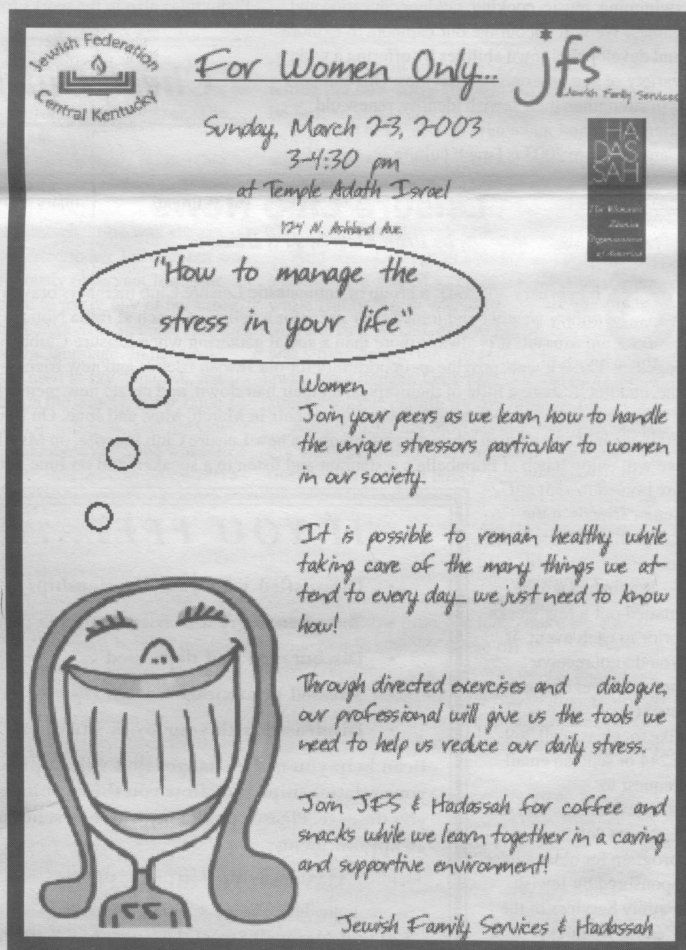 Jewish Federation
Central Kentucky
For Women Only...
jfs
Jewish Family Services
Sunday, March 23, 2003
3-4:30 pm
at Temple Adath Israel
124 N. Ashland Ave.
HA
DAS
SAH
The Women's
Zionist
Organization
of America
"How to manage the
stress in your life"
Women,
Join your peers as we learn how to handle
the unique stressors particular to women
in our society.
It is possible to remain healthy while
taking care of the many things we at-
tend to every day... we just need to know
how!
Through directed exercises and dialogue,
our professional will give us the tools we
need to help us reduce our daily stress.
Join JFS & Hadassah for coffee and
snacks while we learn together in a caring
and supportive environment!
Jewish Family Services & Hadassah